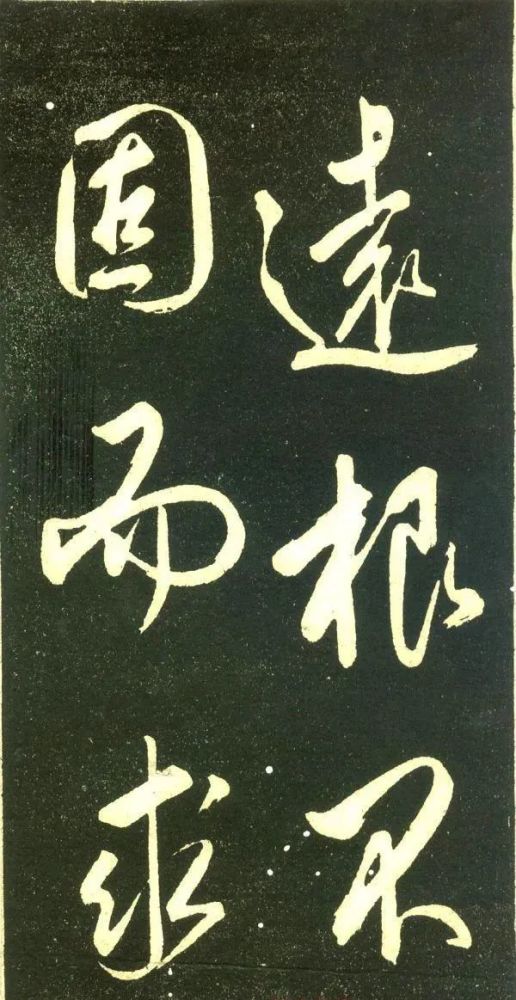 遠根不
固而求